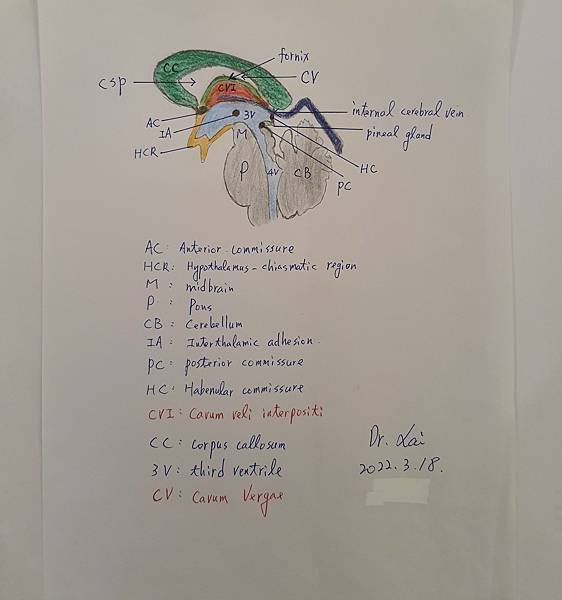 fornix
CC
CV
CSP
CVI
internal cerebral vein
AC
3V
IA
pineal gland
M
HCR
HC
P
4V
CB
PC
AC: Anterior commissure
HCR: Hypothalamus-chiasmatic region
M: midbrain
P: Pons
CB: Cerebellum
IA: Interthalamic adhesion.
PC: posterior commissure
HC: Habenular commissure
CVI: Cavum veli interpositi
CC: corpus callosum
3V: third ventrile
CV: Cavum Vergae
Dr. Lai
2022.3.18.